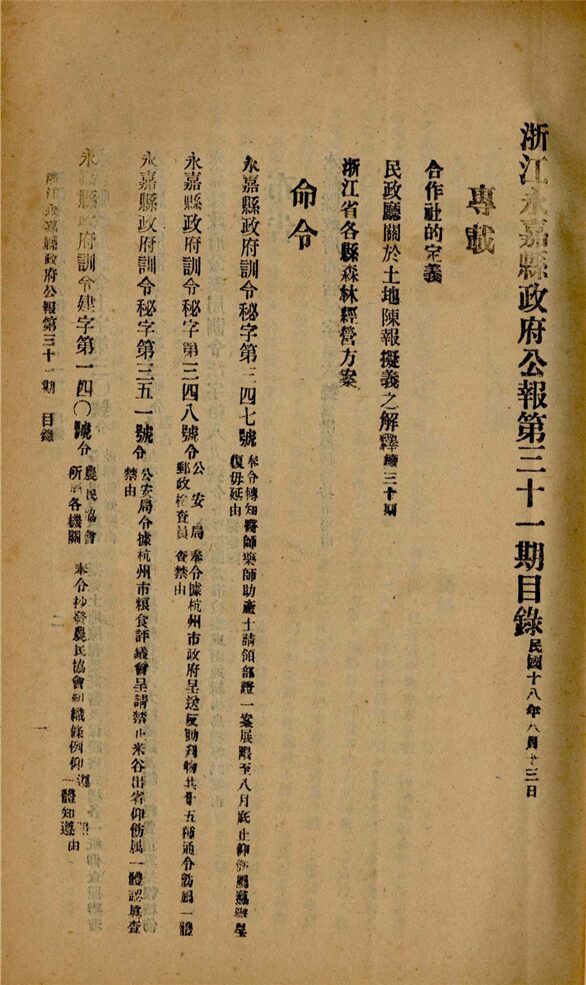 浙江永嘉縣政府公報第三十一期目錄 民國十八年八月十三日
專載
合作社的定義
民政廳關於土地陳報擬義之解釋 續三十期
浙江省各縣森林經營方案
命令
永嘉縣政府訓令秘字第三四七號 奉令轉知醫師藥師助產士請領部證一案展限至八月底止仰
復毋延由
永嘉縣政府訓令秘字第三四八號令 公安局 郵政檢查員 奉令據杭州市政府呈送反動刊物共廿五種通令飭屬一體
查禁由
永嘉縣政府訓令秘字第三五一號令 公安局令據杭州市粮食評議會呈請禁止米谷出省仰飭屬一體認眞查
禁由
永嘉縣政府訓令建字第一四〇號令 農民協會 所屬各機關 奉令抄發農民協會組織條例仰 一體知遵由
浙江永嘉縣政府公報第三十一期 目錄
一